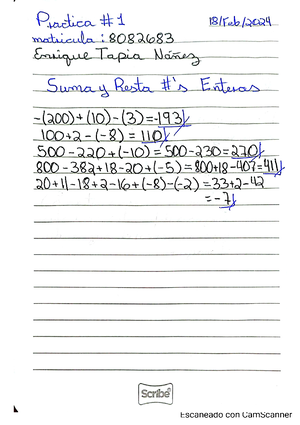 Practica #1
18/Feb/2024
matricula: 8082683
Enrique Tapia Núñez
Suma y Resta #'s Enteros
-(200)+(10)-(3)=-193
100+2-(-8)=110
500-220+(-10)=500-230=270
800-382+18-20+(-5)=800+18-407=411
20+11-18+2-16+(-8)-(-2)=33+2-42
=-7
Scribe
Escaneado con CamScanner